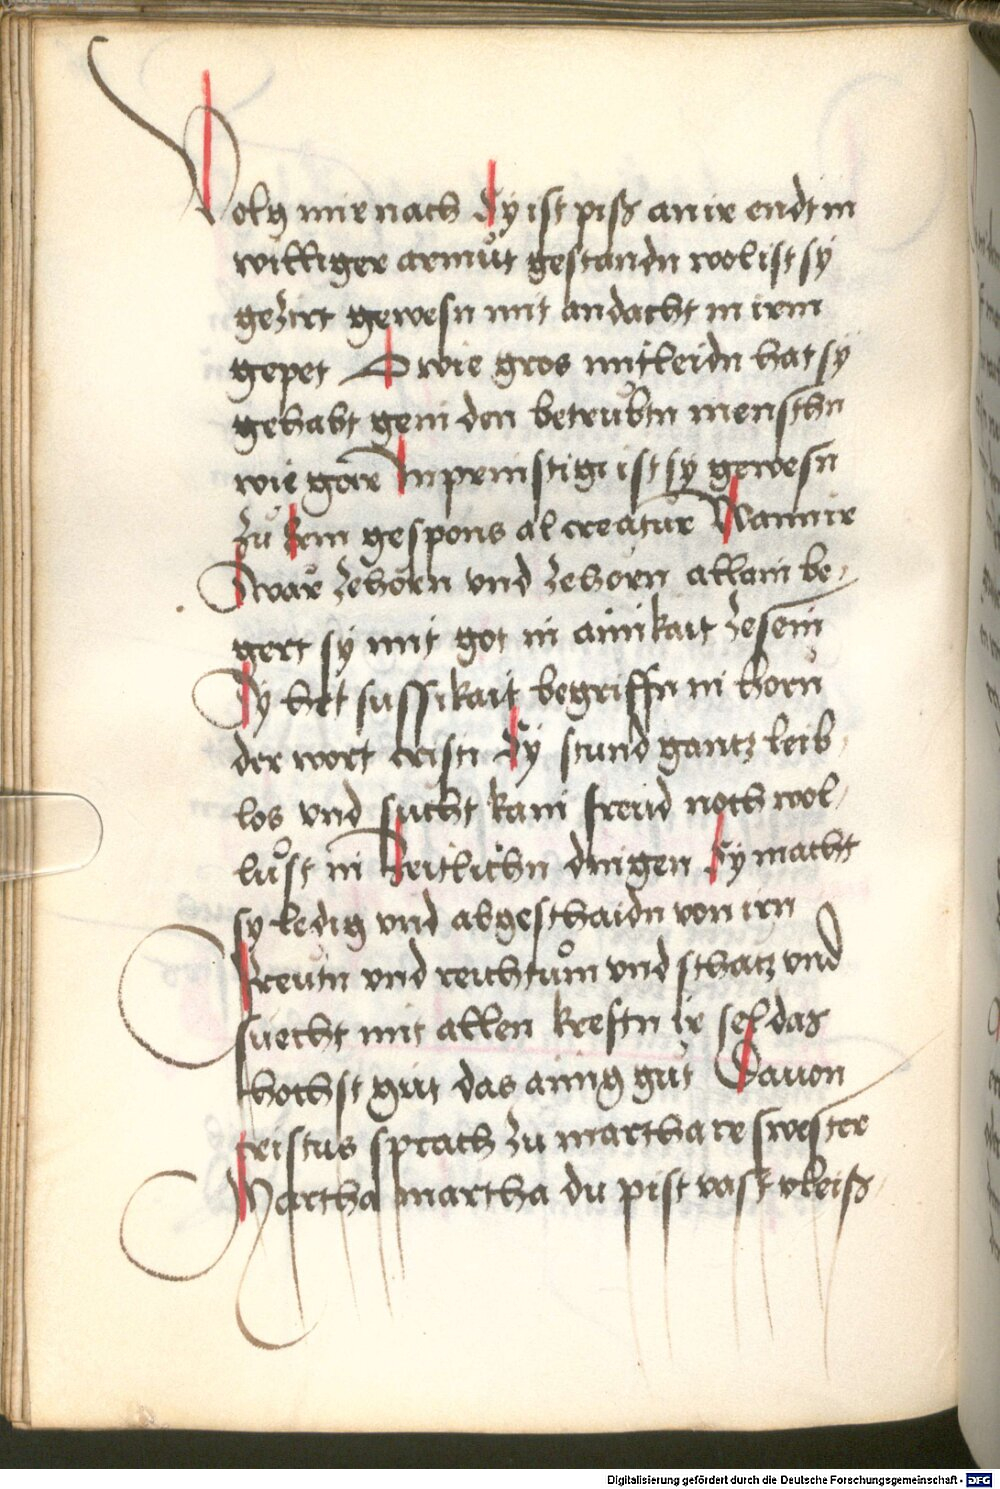 Volg mir nach Sy ist piß an ir endt in
williger armůt gestandn wol ist sy
geziert gewesn mit andacht in irm
gepet O wie gros mitleidn hat sy
gehabt gein den betrubtn menschn
wie gar Inprinstig ist sy gewesn
Zů irem gespons al creatur Wann ir
zwar zehorn vnd zehorn allain be-
gert sy mit got in ainikait zesein
Sy het sussikait begriffn in horn
der wort cristi Sy stund gantz leib-
los vnd sucht kain freud noch wol-
lůst in Zeitlichn dingen Sy macht
sy ledig vnd abgeschaidn von irn
freutn vnd reichtům vnd schatz vnd
suecht mit allen kreftn ir sel das
hochst gůt das ainig gůt Dauon
cristus sprach zu martha ir swester
Martha martha du pist vast vleiß-
Digitalisierung gefördert durch die Deutsche Forschungsgemeinschaft - DFG